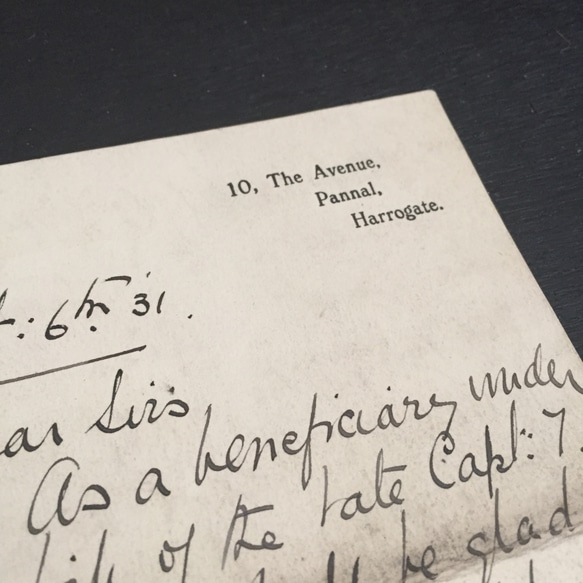 10, The Avenue,
Pannal,
Harrogate.
6th '31.
Sirs
As a beneficiary under
of the late Capt: T.
be glad